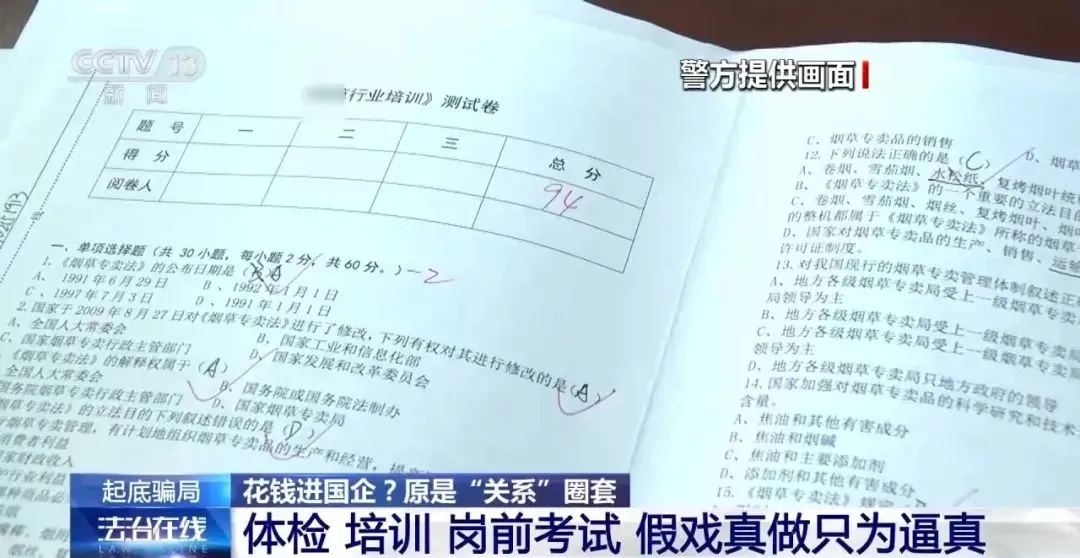 CCTV 13
新闻
警方提供画面
行业培训》测试卷
题 号 一 二 三 总 分
得 分 94
阅卷人
一、单项选择题（共 30 小题，每小题 2 分，共 60 分。）-2
1.《烟草专卖法》的公布日期是（A）
A、1991 年 6 月 29 日 B、1992 年 1 月 1 日
C、1997 年 7 月 3 日 D、1991 年 1 月 1 日
2.国家于 2009 年 8 月 27 日对《烟草专卖法》进行了修改，下列有权对其进行修改的是（A）
A、全国人大常委会 B、国家工业和信息化部
C、国家烟草专卖行政主管部门 D、国家发展和改革委员会
《烟草专卖法》的解释权属于（A）
全国人大常委会 B、国务院或国务院法制办
国务院烟草专卖行政主管部门 D、国家烟草专卖局
烟草专卖法》的立法目的下列叙述错误的是（D）
烟草专卖管理，有计划地组织烟草专卖品的生产和经营，提高
消费者利益
国家财政收入
C、烟草专卖品的销售 D、烟草
12.下列说法正确的是（C）
A、卷烟、雪茄烟、水松纸、复烤烟叶统
B、《烟草专卖法》的一个重要的立法目的
C、卷烟、雪茄烟、烟丝、复烤烟叶、烟叶
的整机都属于《烟草专卖法》所称的烟草
D、国家对烟草专卖品的生产、销售、运输
许可证制度。
13.对我国现行的烟草专卖管理体制叙述正
A、地方各级烟草专卖局受上一级烟草专卖
局领导为主
B、地方各级烟草专卖局受上一级烟草专卖
C、地方各级烟草专卖局受上一级烟草专卖局
领导为主
D、地方各级烟草专卖局只地方政府的领导
14.国家加强对烟草专卖品的科学研究和技术
含量。
A、焦油和其他有害成分
B、焦油和烟碱
C、焦油和主要添加剂
D、添加剂和其他有害成分
15.《烟草专卖法》规定
起底骗局
花钱进国企？原是“关系”圈套
法治在线
体检 培训 岗前考试 假戏真做只为逼真